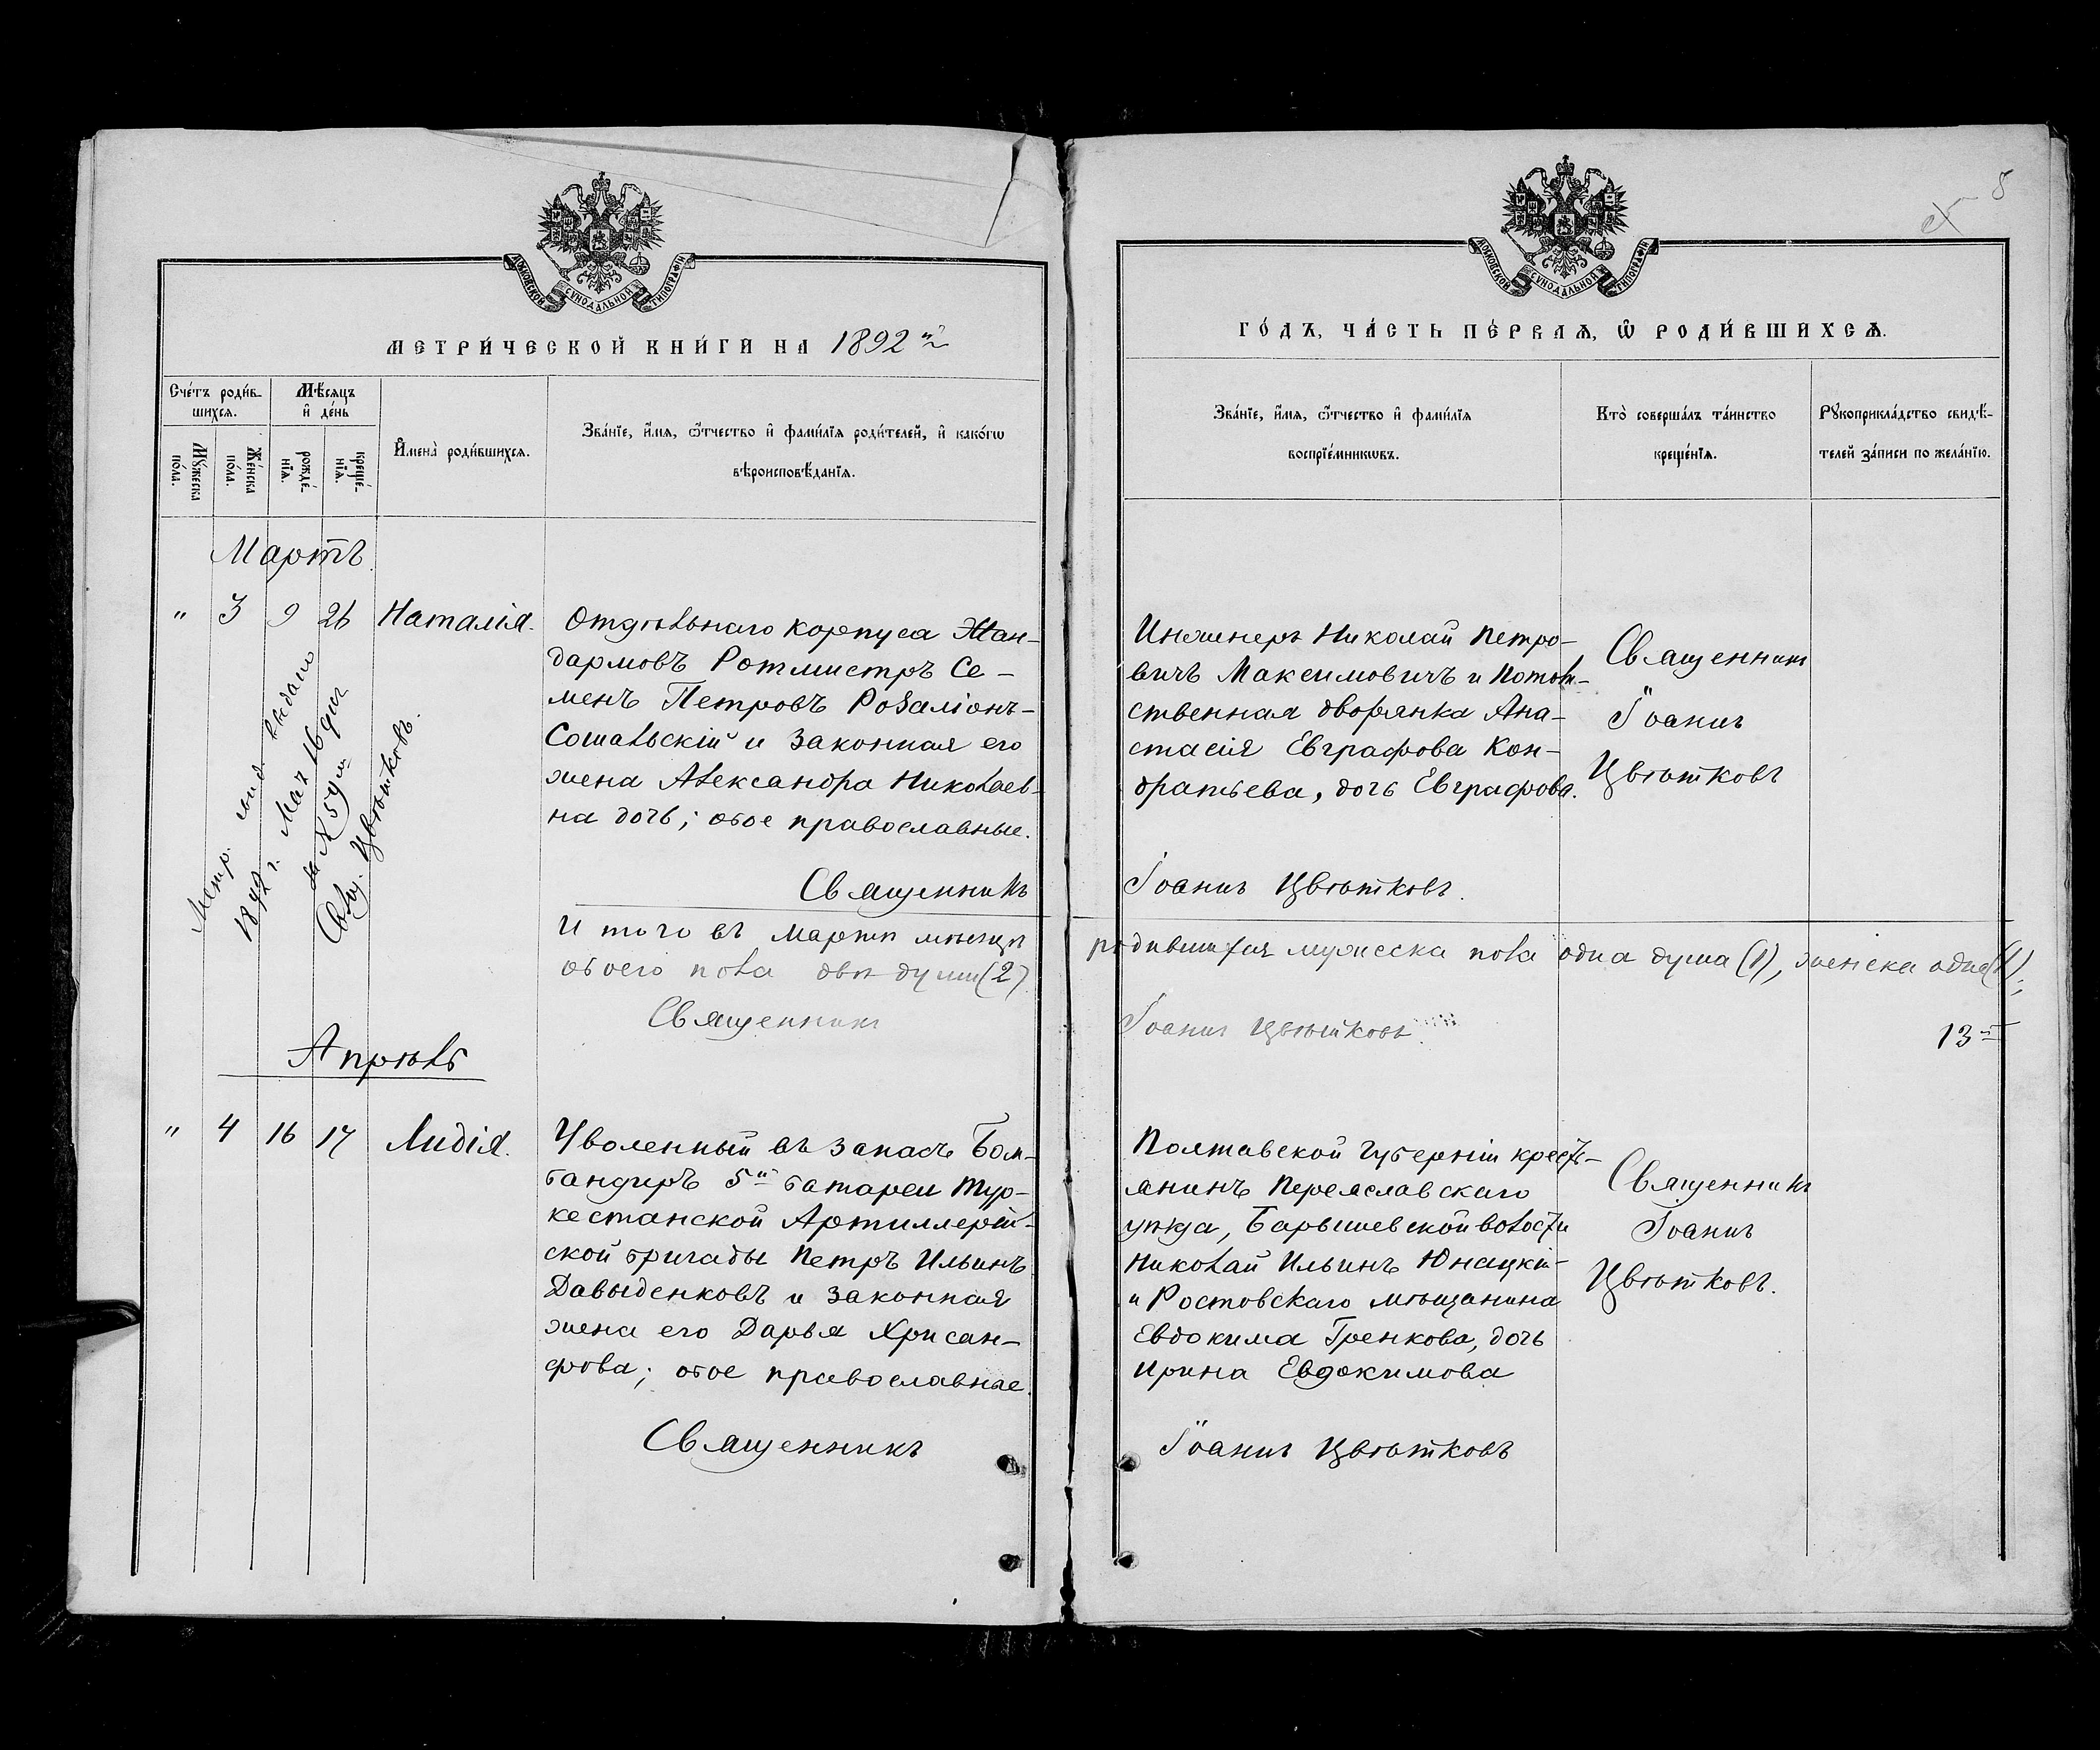 МОСКОВСКОЙ СѴНОДАЛЬНОЙ ТИПОГРАФІИ
МЕТРИ́ЧЕСКОЙ КНИ́ГИ НА 1892 й
Сче́тъ роди́в-
шихсѧ.
Мѣ́сѧцъ
и҆ де́нь
Мꙋ́жеска
по́ла.
Же́нска
по́ла.
рожде́-
нїѧ.
креще́-
нїѧ.
И҆мена̀ роди́вшихсѧ.
Зва́нїе, и҆́мѧ, ѻ҆́тчество и҆ фами́лїѧ роди́телей, и҆ како́гѡ
вѣроисповѣ́данїѧ.
Мартъ
" 3 9 26 Наталія.
Отдѣльнаго корпуса Жан-
дармовъ Ротмистръ Се-
менъ Петровъ Розаліонъ-
Сошальскій и законная его
жена Александра Николаев-
на дочь; обое православные.
Священникъ
Метр. свид. выдано
1892 г. Мая 16 дня
за № 59 м
Свящ. Цвѣтковъ.
Итого въ Мартѣ мѣсяцѣ
обоего пола двѣ души (2)
Священникъ
Апрѣль
" 4 16 17 Лидія.
Уволенный въ запасъ Бом-
бандиръ 5й батареи Тур-
кестанской Артиллерій-
ской бригады Петръ Ильинъ
Давыденковъ и законная
жена его Дарья Хрисан-
фова; обое православные.
Священникъ
5
МОСКОВСКОЙ СѴНОДАЛЬНОЙ ТИПОГРАФІИ
ГО́ДЪ, ЧА́СТЬ ПЕ́РВАѦ, Ѡ҆ РОДИ́ВШИХСѦ.
Зва́нїе, и҆́мѧ, ѻ҆́тчество и҆ фами́лїѧ
воспрїе́мникѡвъ.
Кто̀ соверша́лъ та́инство
креще́нїѧ.
Рꙋкоприкла́дство свидѣ́-
телей за́писи по жела́нїю.
Инженеръ Николай Петро-
вичъ Максимовичъ и Потом-
ственная дворянка Ана-
стасія Евграфова Кон-
дратьева, дочь Евграфова.
Священникъ
Іоаннъ
Цвѣтковъ
Іоаннъ Цвѣтковъ.
родившихся мужеска пола одна душа (1), женска одна (1);
Іоаннъ Цвѣтковъ.
13
Полтавской губерніи кресть-
янинъ Переяславскаго
уѣзда, Барышевской волости
Николай Ильинъ Юнацкій
и Ростовскаго мѣщанина
Евдокима Гренкова, дочь
Ирина Евдокимова
Священникъ
Іоаннъ
Цвѣтковъ.
Іоаннъ Цвѣтковъ